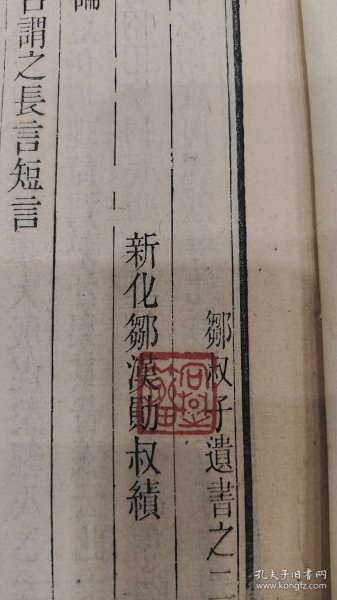 鄒叔子遺書之二
新化鄒漢勛叔績
論
謂之長言短言
孔夫子旧书网